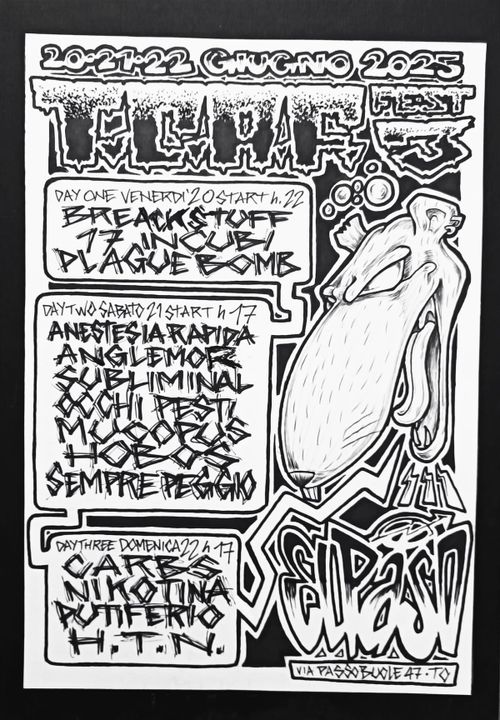 20·21·22 GIUGNO 2025
T.C.H.F.
FEST
3
DAY ONE VENERDI' 20 START h. 22
BREACKSTUFF
17 INCUBI
PLAGUE BOMB
DAY TWO SABATO 21 START h 17
ANESTESIA RAPIDA
ANGLEMOR
SUBLIMINAL
OCCHI PESTI
MUCOPUS
HOBOS
SEMPRE PEGGIO
DAY THREE DOMENICA 22 h 17
CARBS
NIKOTINA
PUTIFERIO
H.T.N.
El Paso
VIA PASSO BUOLE 47 · TO